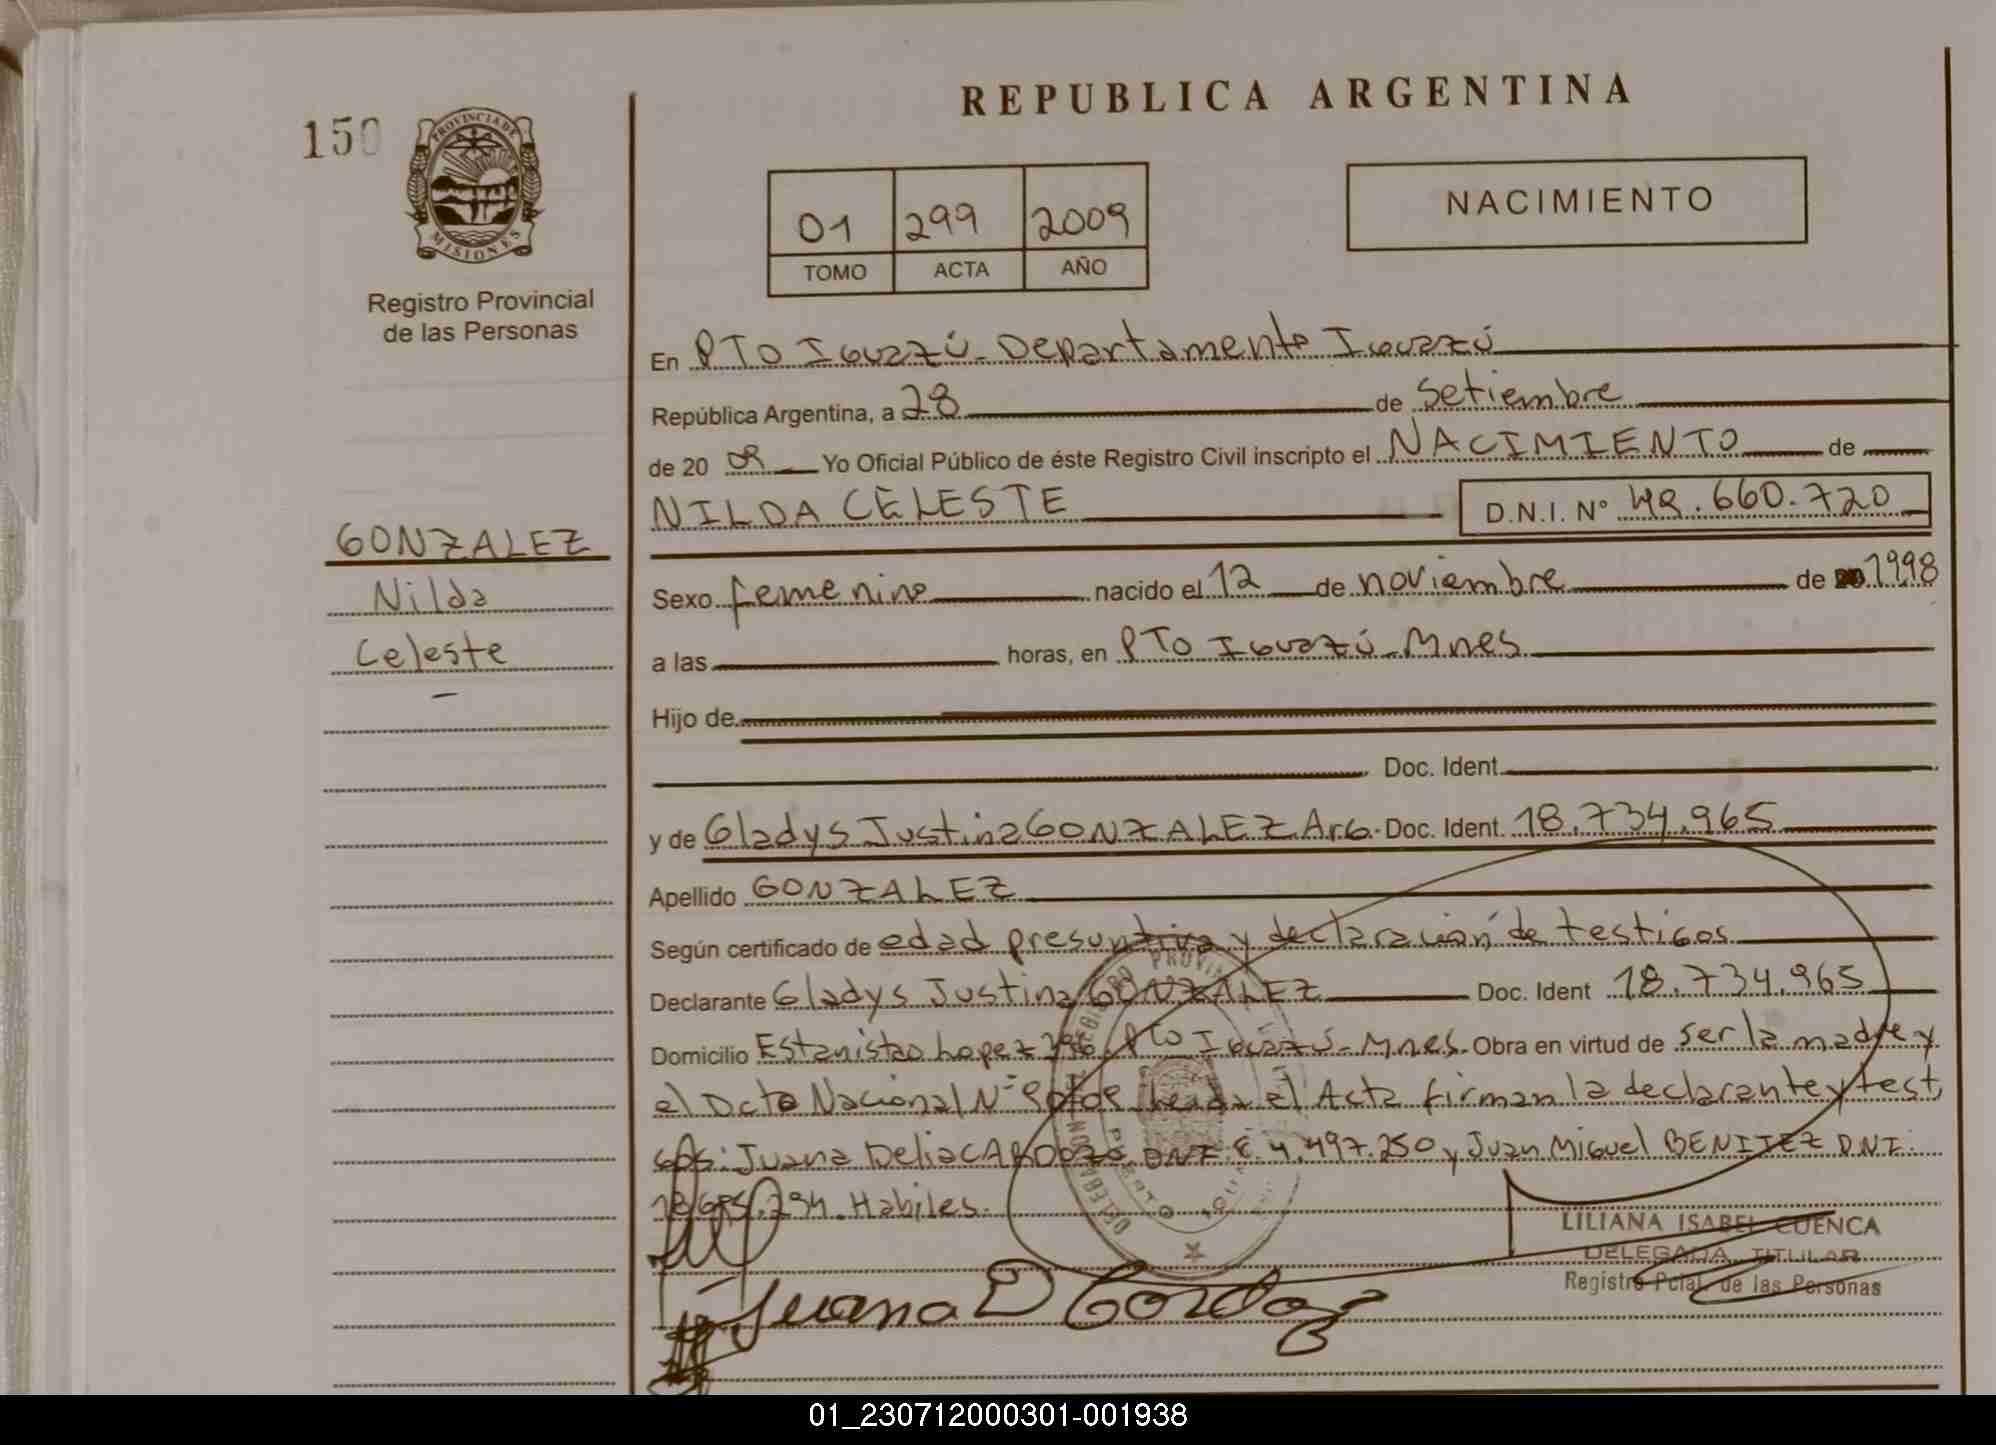 REPUBLICA ARGENTINA
150
PROVINCIA DE
MISIONES
Registro Provincial
de las Personas
01 299 2009
TOMO ACTA AÑO
NACIMIENTO
En PTO Iguazú - Departamento Iguazú
República Argentina, a 28 de Setiembre
de 20 09 Yo Oficial Público de éste Registro Civil inscripto el NACIMIENTO de
NILDA CELESTE D.N.I. Nº 49.660.720
GONZALEZ
Nilda
Celeste
Sexo femenino nacido el 12 de noviembre de 1998
a las horas, en PTO Iguazú - Mnes
Hijo de
Doc. Ident.
y de Gladys Justina GONZALEZ Arg. Doc. Ident. 18.734.965
Apellido GONZALEZ
Según certificado de edad presuntiva y declaración de testigos
Declarante Gladys Justina GONZALEZ Doc. Ident 18.734.965
Domicilio Estanislao Lopez PTO Iguazú - Mnes. Obra en virtud de ser la madre y
el Dcto Nacional Nº leida el Acta firman la declarante y testi
gos: Juana Delia CARDOZO DNI. 4.497.250 y Juan Miguel BENITEZ DNI.
Habiles.
LILIANA ISABEL CUENCA
DELEGADA TITULAR
Registro Pcial. de las Personas
Juana D Cordozo
01_230712000301-001938